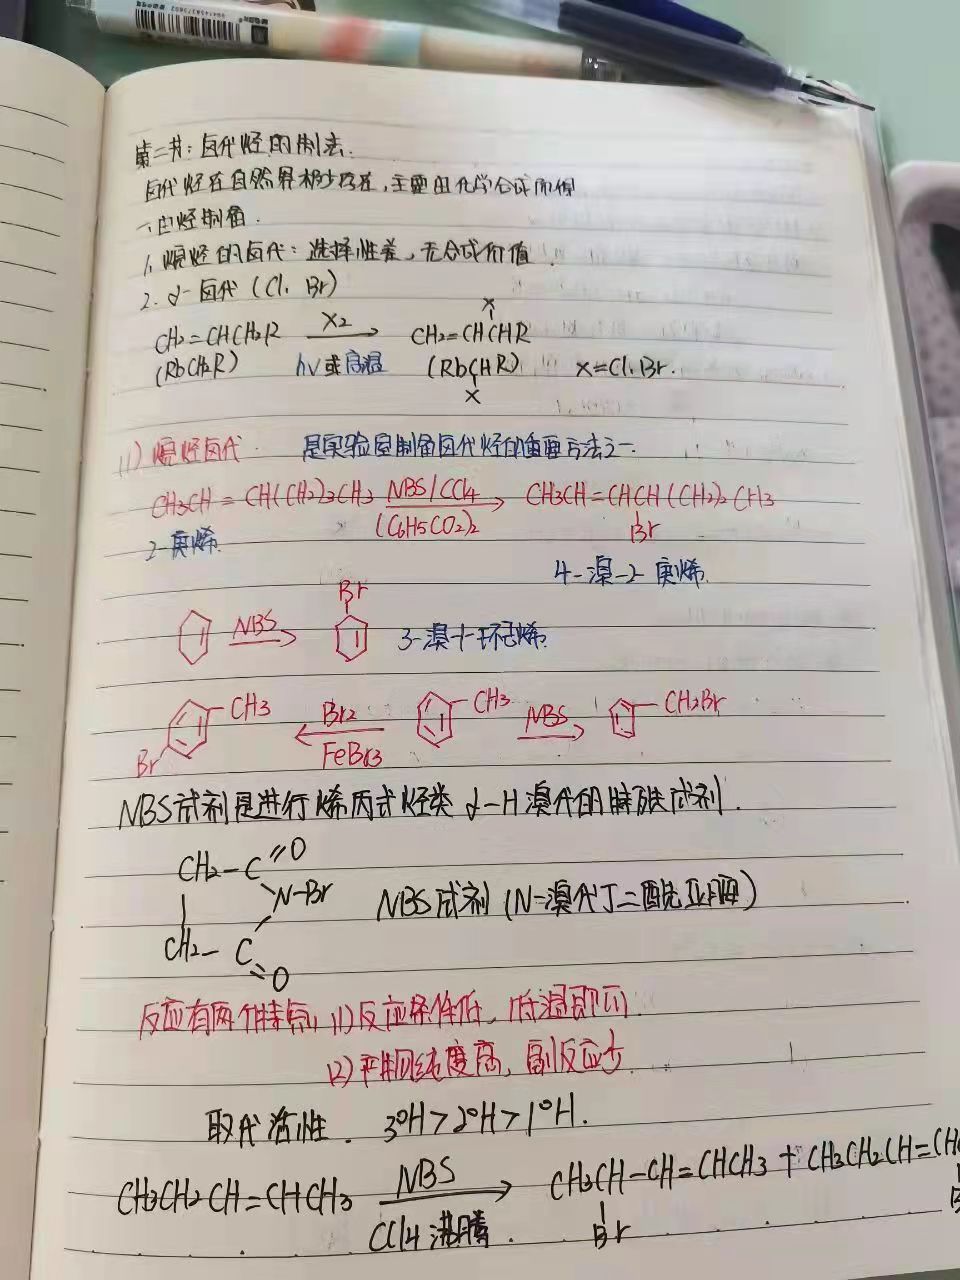 第二节：卤代烃的制法.
卤代烃在自然界极少存在，主要由化学合成而得
一、由烃制备.
1. 烷烃的卤代：选择性差，无合成价值.
2. α-卤代（Cl、Br）
X
CH2=CHCH2R X2 CH2=CHCHR
(RbCH2R) hv或高温 (RbCHR) X=Cl、Br.
X
(1) 烯烃卤代. 是实验室制备卤代烃的重要方法之一.
CH3CH=CH(CH2)3CH3 NBS/CCl4 CH3CH=CHCH(CH2)2CH3
(C6H5CO2)2 Br
2-庚烯. 4-溴-2-庚烯.
Br
NBS 3-溴-1-环己烯.
CH3 Br2 CH3 NBS CH2Br
Br FeBr3
NBS试剂是进行烯丙式烃类α-H溴代的特殊试剂.
CH2-C=O
N-Br NBS试剂（N-溴代丁二酰亚胺）
CH2-C
=O
反应有两个特点，(1)反应条件低，低温即可.
(2)产物纯度高，副反应少.
取代活性. 3°H>2°H>1°H.
CH3CH2CH=CHCH3 NBS CH3CH-CH=CHCH3 + CH3CH2CH=CH
CCl4沸腾. Br